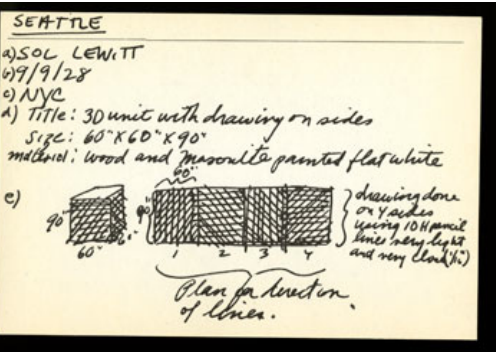 SEATTLE
a) SOL LEWITT
b) 9/9/28
c) NYC
d) Title: 3D unit with drawing on sides
Size: 60" X 60" X 90"
material: wood and masonite painted flat white
e)
60"
90"
60"
90"
1 2 3 4
drawing done
on 4 sides
using 10H pencil
lines very light
and very close
Plan for direction
of lines.